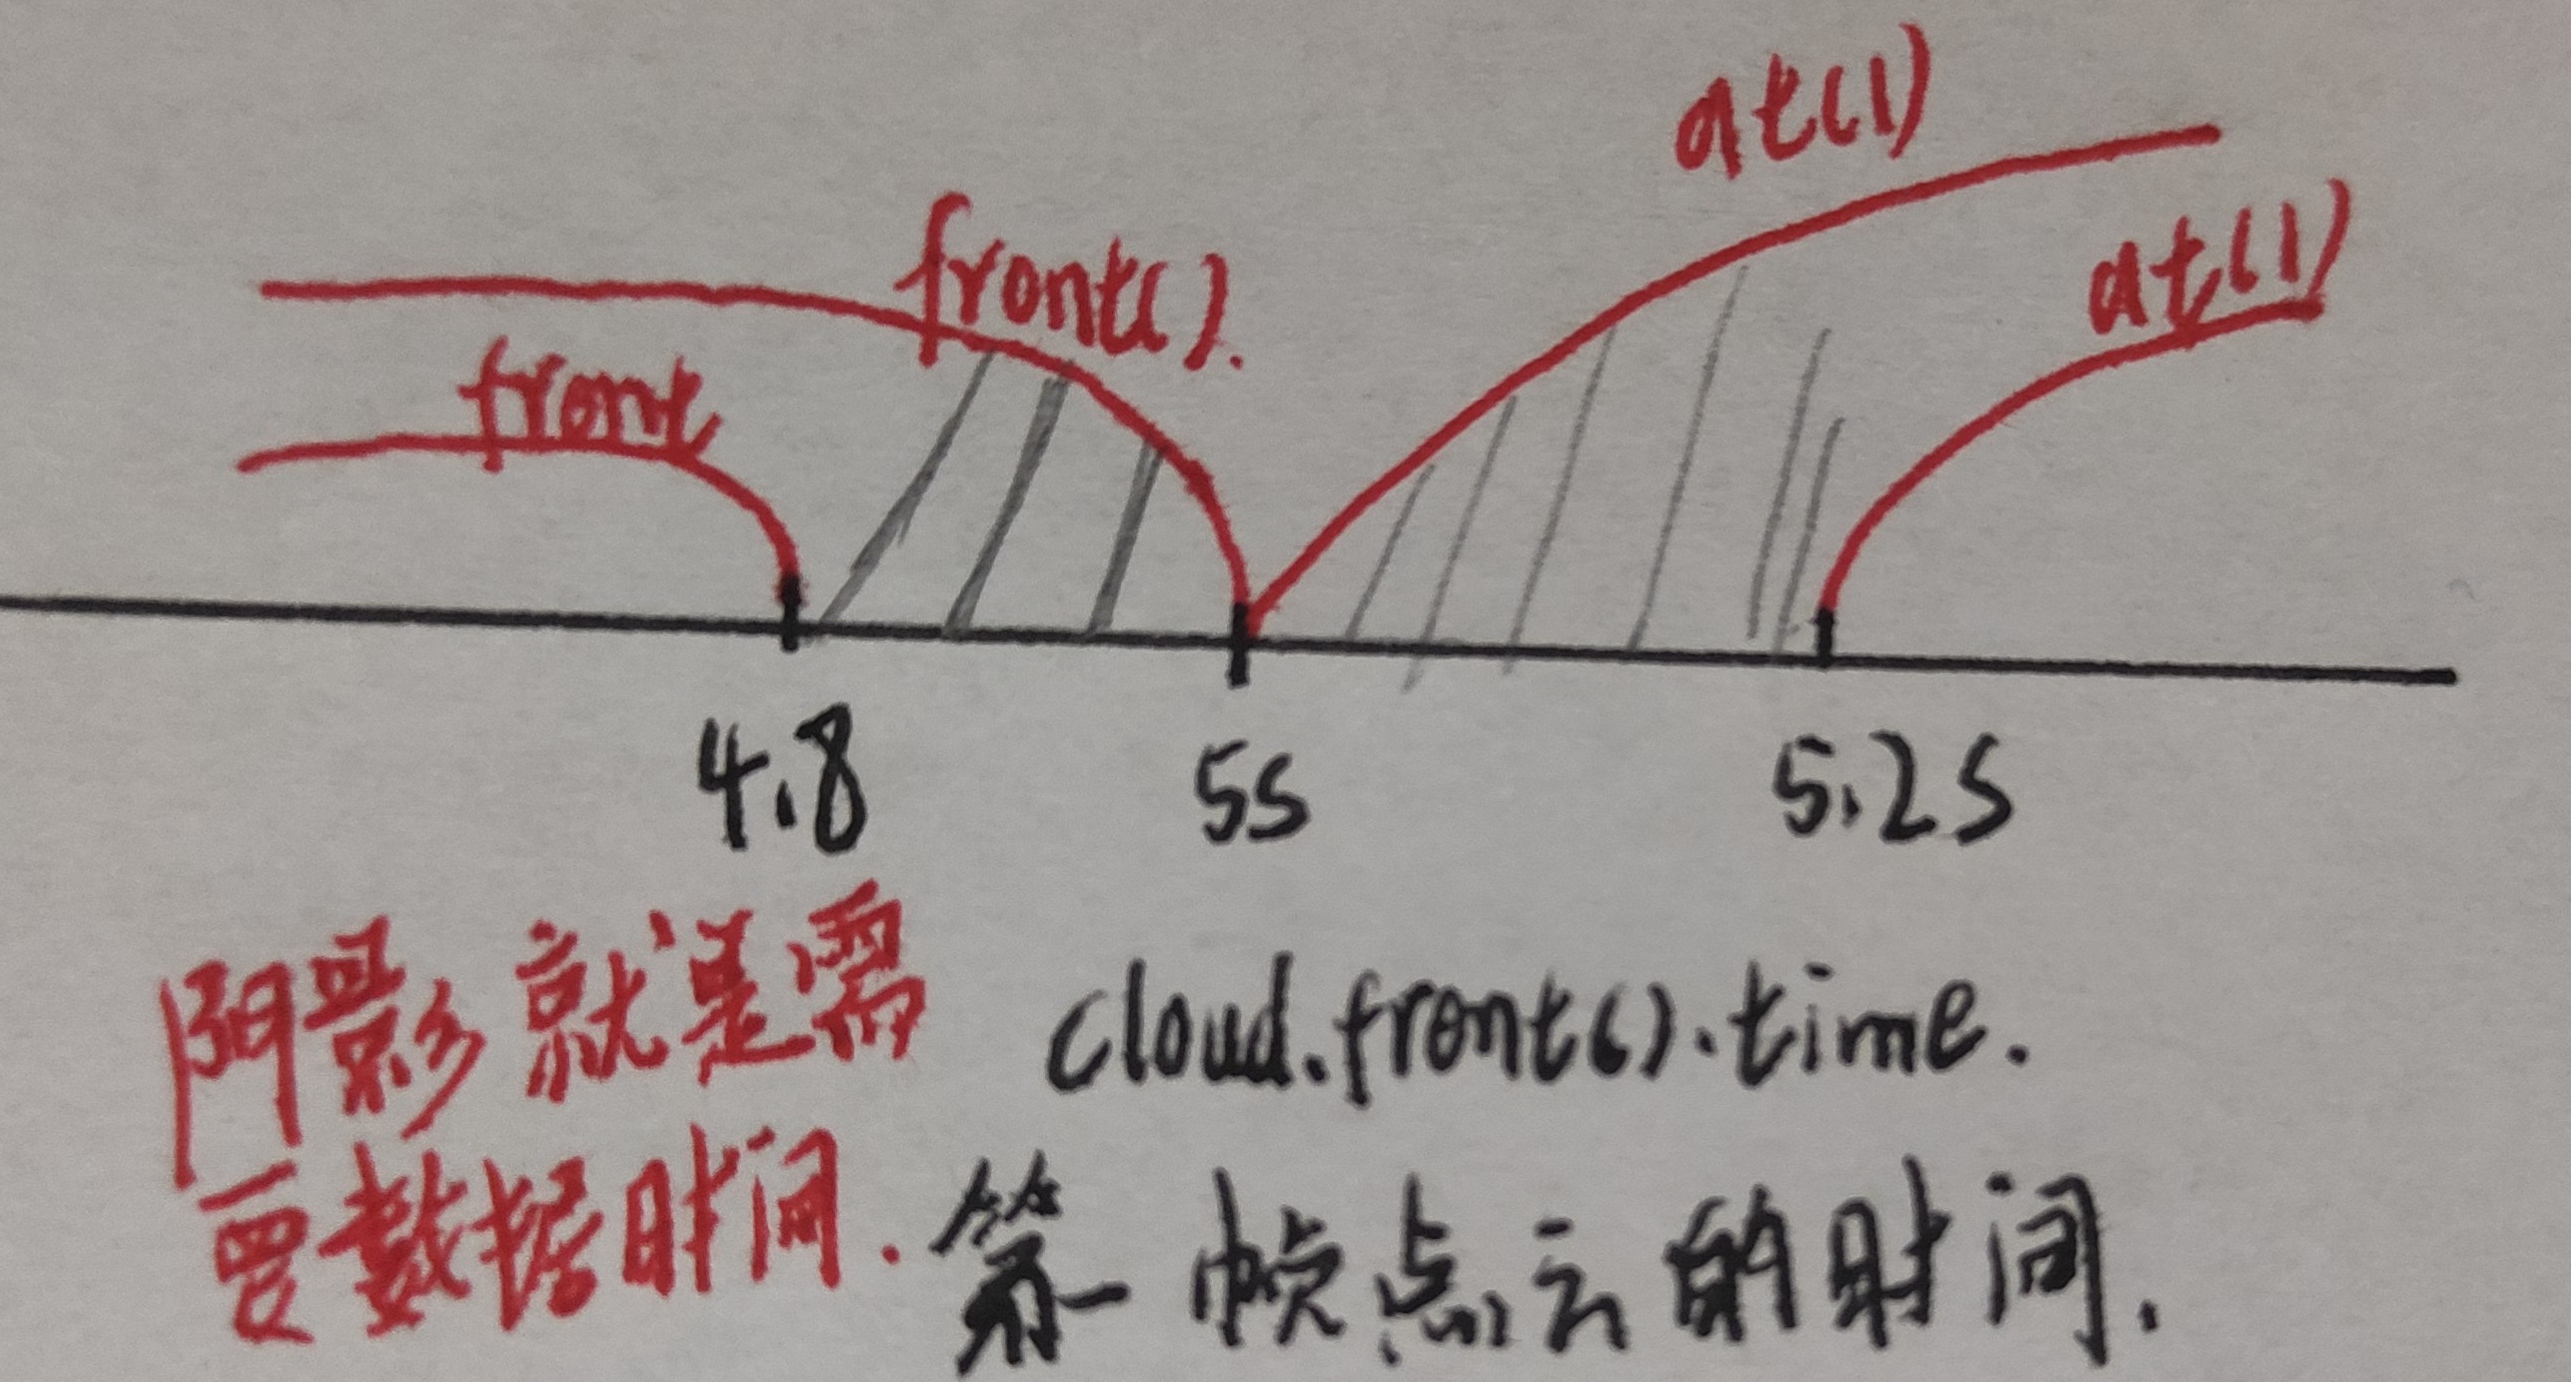 at(1)
front().
at(1)
front
4.8
5s
5.2s
阴影就是需
要数据时间.
cloud.front().time.
第一帧点云的时间.